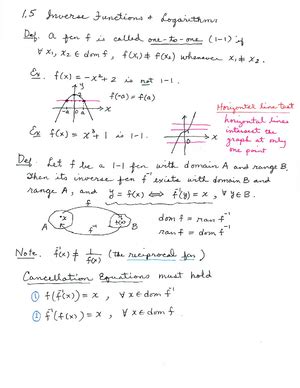 1.5 Inverse Functions & Logarithms
Def. A fcn f is called one-to-one (1-1) if
∀ x₁, x₂ ∈ dom f, f(x₁) ≠ f(x₂) whenever x₁ ≠ x₂.
Ex. f(x) = -x²+2 is not 1-1.
y
f(-a) = f(a)
-a a x
Horizontal line test
horizontal lines
intersect the
graph at only
one point
x
Ex f(x) = x³+1 is 1-1.
Def. Let f be a 1-1 fcn with domain A and range B.
Then its inverse fcn f⁻¹ exists with domain B and
range A, and y = f(x) ⟺ f⁻¹(y) = x, ∀ y ∈ B.
f
x
f(x)
A f⁻¹ B
dom f = ran f⁻¹
ran f = dom f⁻¹
Note. f⁻¹(x) ≠ 1/f(x) (the reciprocal fcn)
Cancellation Equations must hold
① f(f⁻¹(x)) = x, ∀ x ∈ dom f⁻¹
② f⁻¹(f(x)) = x, ∀ x ∈ dom f.